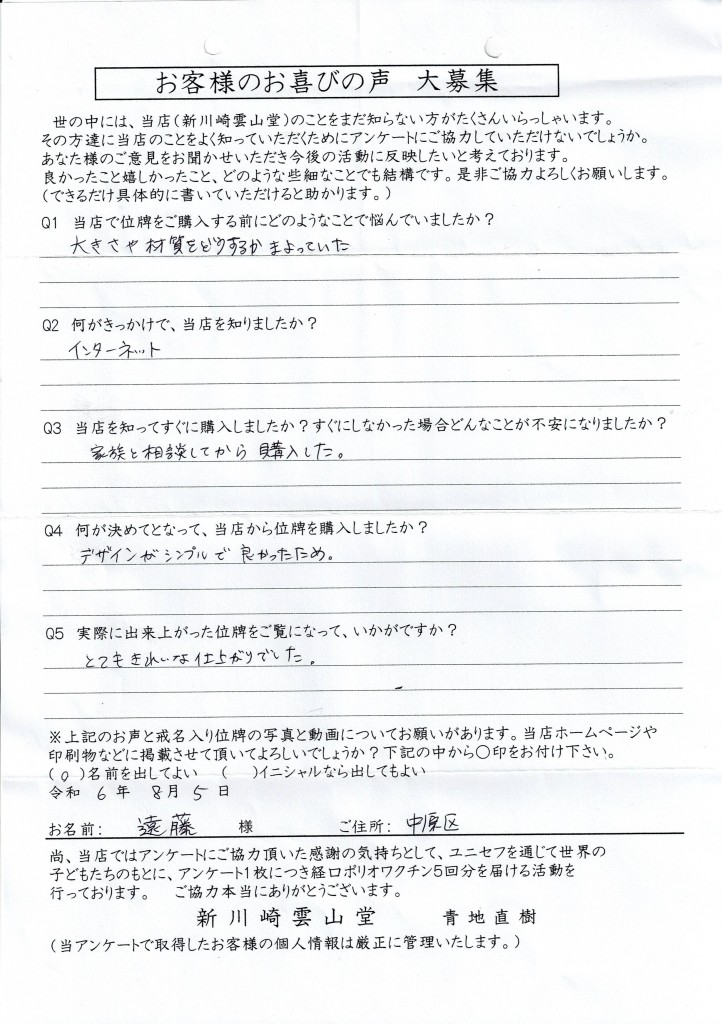 お客様のお喜びの声 大募集
世の中には、当店(新川崎雲山堂)のことをまだ知らない方がたくさんいらっしゃいます。
その方達に当店のことをよく知っていただくためにアンケートにご協力していただけないでしょうか。
あなた様のご意見をお聞かせいただき今後の活動に反映したいと考えております。
良かったこと嬉しかったこと、どのような些細なことでも結構です。是非ご協力よろしくお願いします。
(できるだけ具体的に書いていただけると助かります。)
Q1 当店で位牌をご購入する前にどのようなことで悩んでいましたか?
大きさや材質をどうするかまよっていた
Q2 何がきっかけで、当店を知りましたか?
インターネット
Q3 当店を知ってすぐに購入しましたか?すぐにしなかった場合どんなことが不安になりましたか?
家族と相談してから購入した。
Q4 何が決めてとなって、当店から位牌を購入しましたか?
デザインがシンプルで良かったため。
Q5 実際に出来上がった位牌をご覧になって、いかがですか?
とてもきれいな仕上がりでした。
※上記のお声と戒名入り位牌の写真と動画についてお願いがあります。当店ホームページや
印刷物などに掲載させて頂いてよろしいでしょうか?下記の中から○印をお付け下さい。
(○)名前を出してよい ( )イニシャルなら出してもよい
令和 6年 8月 5日
お名前: 遠藤 様 ご住所: 中原区
尚、当店ではアンケートにご協力頂いた感謝の気持ちとして、ユニセフを通じて世界の
子どもたちのもとに、アンケート1枚につき経口ポリオワクチン5回分を届ける活動を
行っております。 ご協力本当にありがとうございます。
新川崎雲山堂 青地直樹
(当アンケートで取得したお客様の個人情報は厳正に管理いたします。)